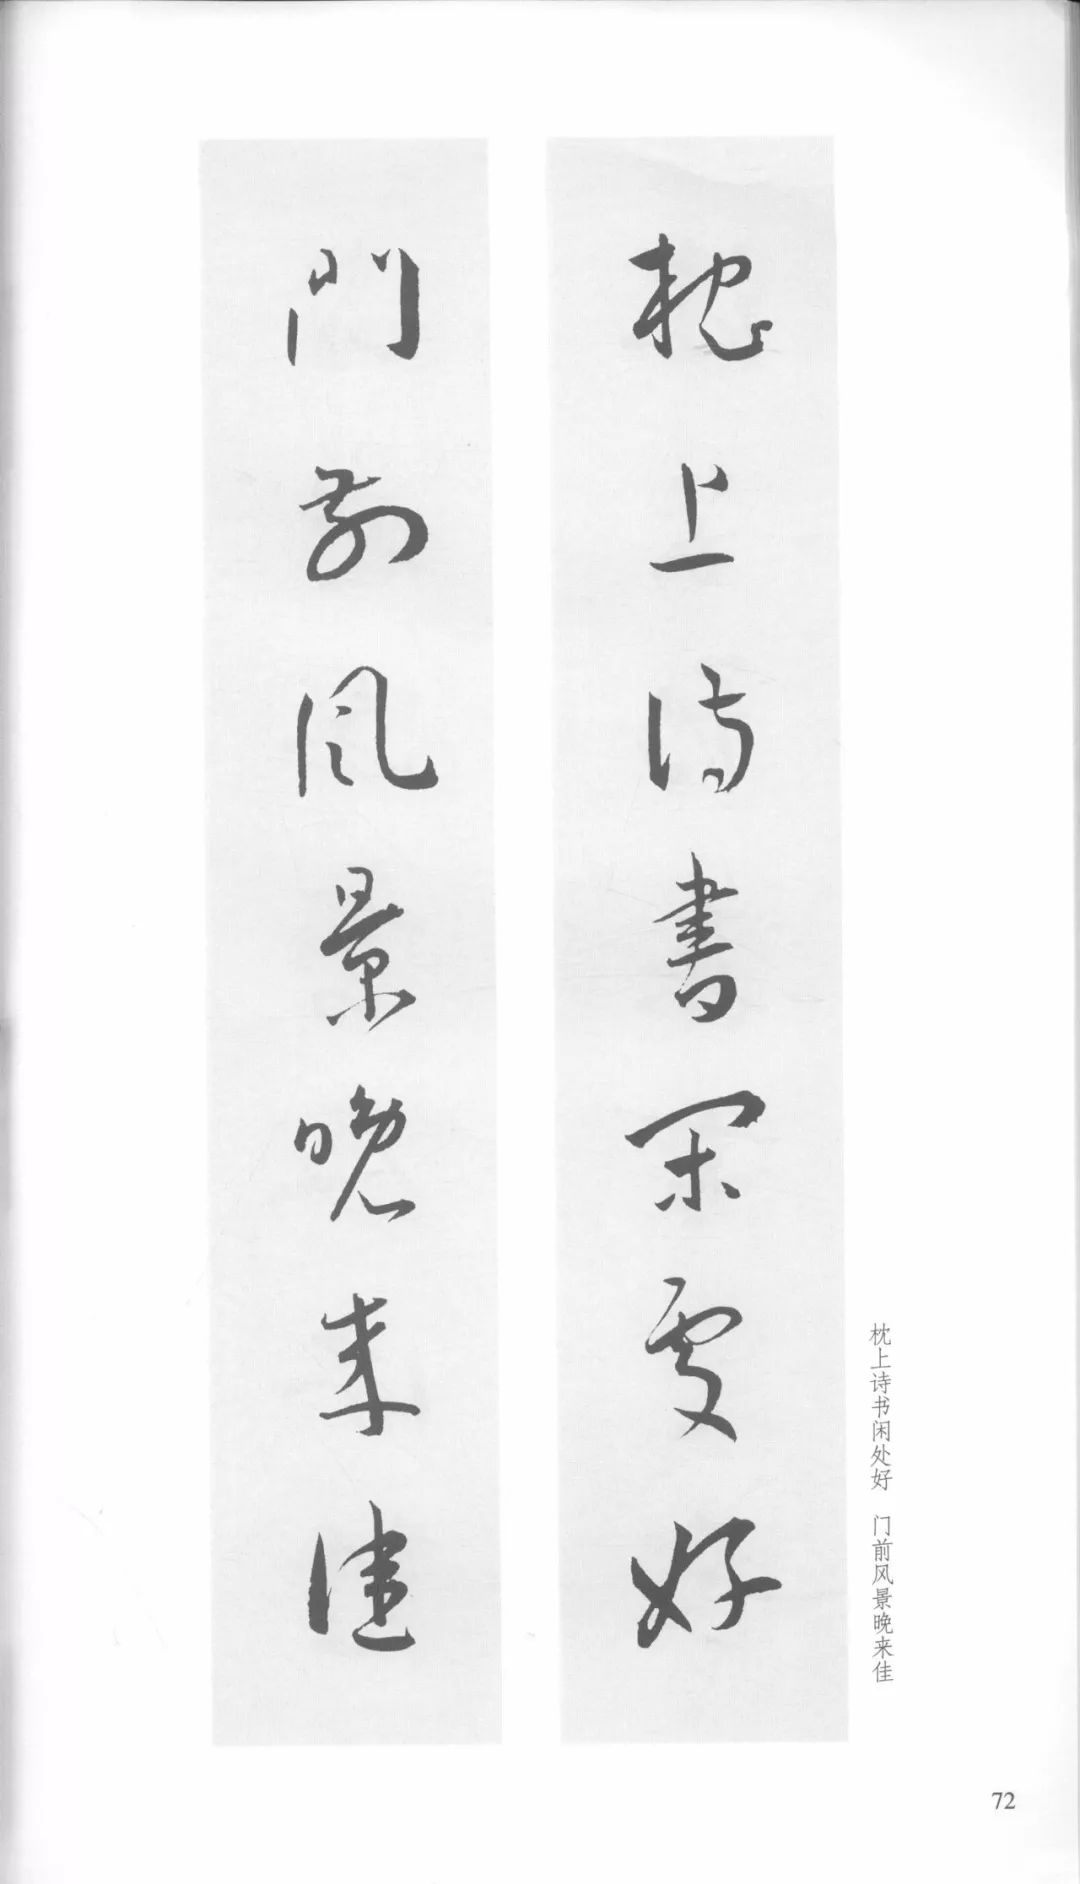 枕上诗書闲处好
門前风景晚来佳
枕上诗书闲处好 门前风景晚来佳
72